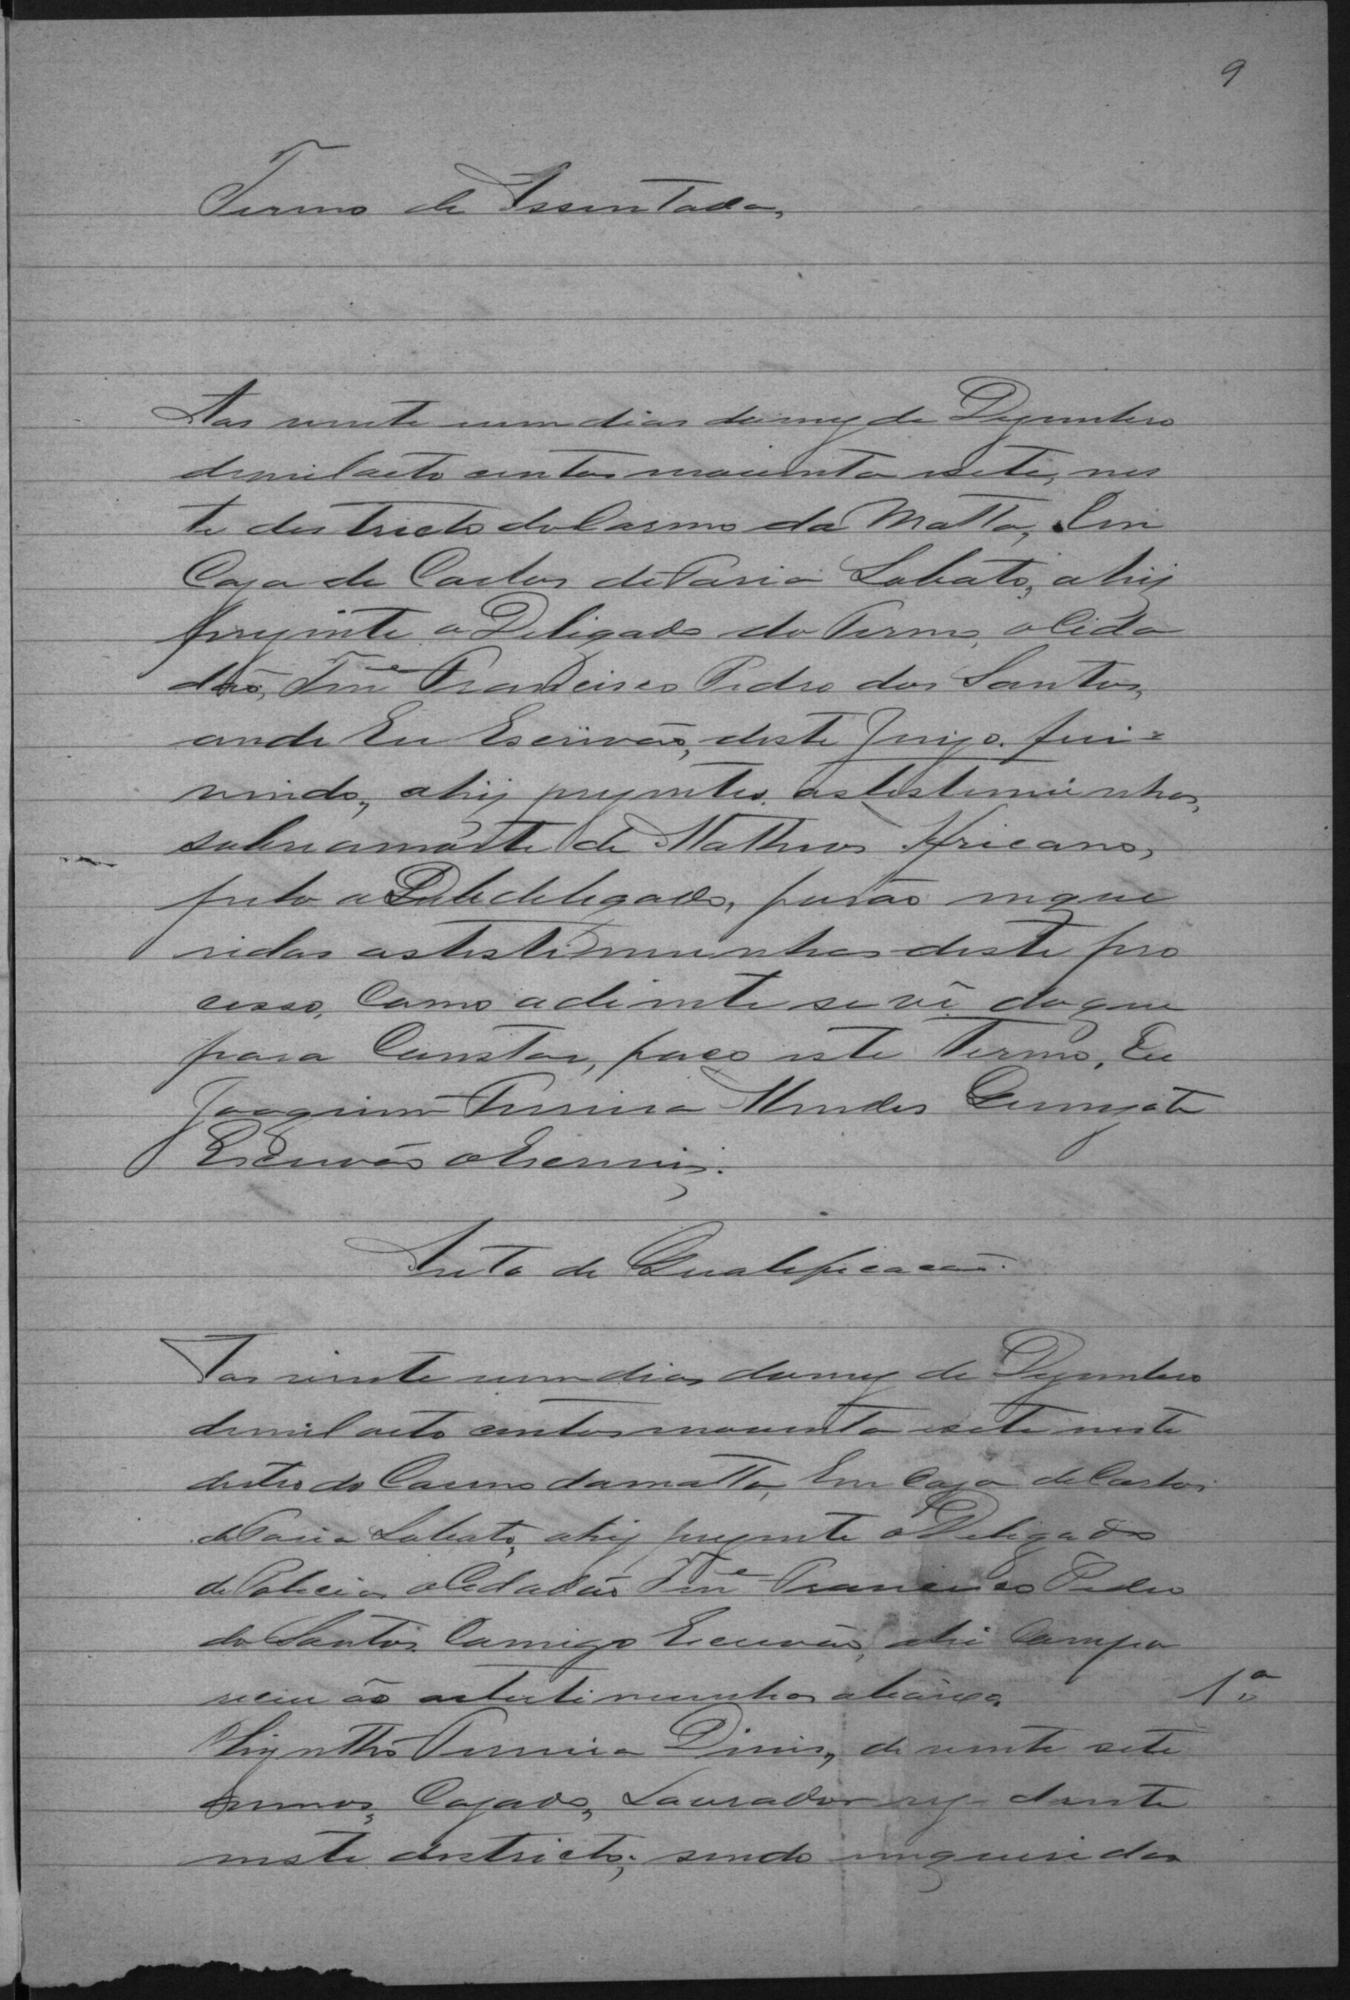 9
Termo de Assentada,
Aos vinte um dias do mez de Dezembro
de mil oito centos noventa esete, nes
te destricto do Carmo da Matta, Em
Caza de Carlos de Faria Lobato, ahij
prezinte o Deligado do Termo, o Cida
dão, Tne Francisco Pedro dos Santos,
onde Eu Escrivão, deste Juizo. fui=
vindo, ahij prezintes. astestimunhas,
sobre amorte de Matheos Africano,
pelo o Subdelegado, furão inque
ridas astestimunhas deste pro
cesso, Como adiente se vê do que
para Constar, faço este Termo, Eu
Joaquim Ferreira Mendes
Escrivão o Escrevij.
Auto de Qualificacão.
Aos vinte um dias do mez de Dezembro
de mil oito centos noventa esete neste
destro do Carmo damatta, Em Caza de Carlos
de Faria Lobato, ahij prezente o Deligado
de Policia o Cidadão Tne Francisco Pedro
do Santos Comigo Escrivão, ahi Compa
recerão astestimunhas abaixo,
1a
Ferreira Dinis, de vinte sete
annos, Cazado, Laurador rezidente
neste destricto; sendo inqueridas